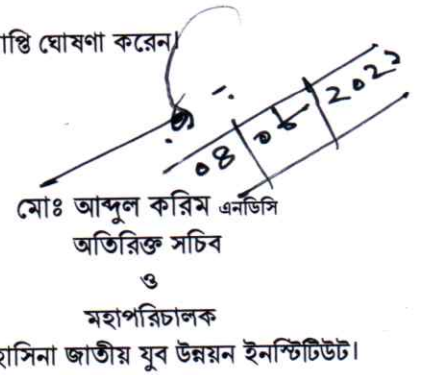 াপ্তি ঘোষণা করেন।
০৪|০৮|২০২১
মোঃ আব্দুল করিম এনডিসি
অতিরিক্ত সচিব
ও
মহাপরিচালক
হাসিনা জাতীয় যুব উন্নয়ন ইনস্টিটিউট।